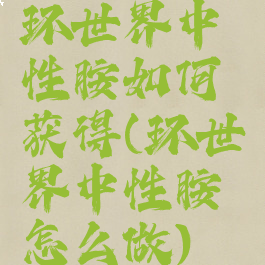 环世界中
性胺如何
获得(环世
界中性胺
怎么做)